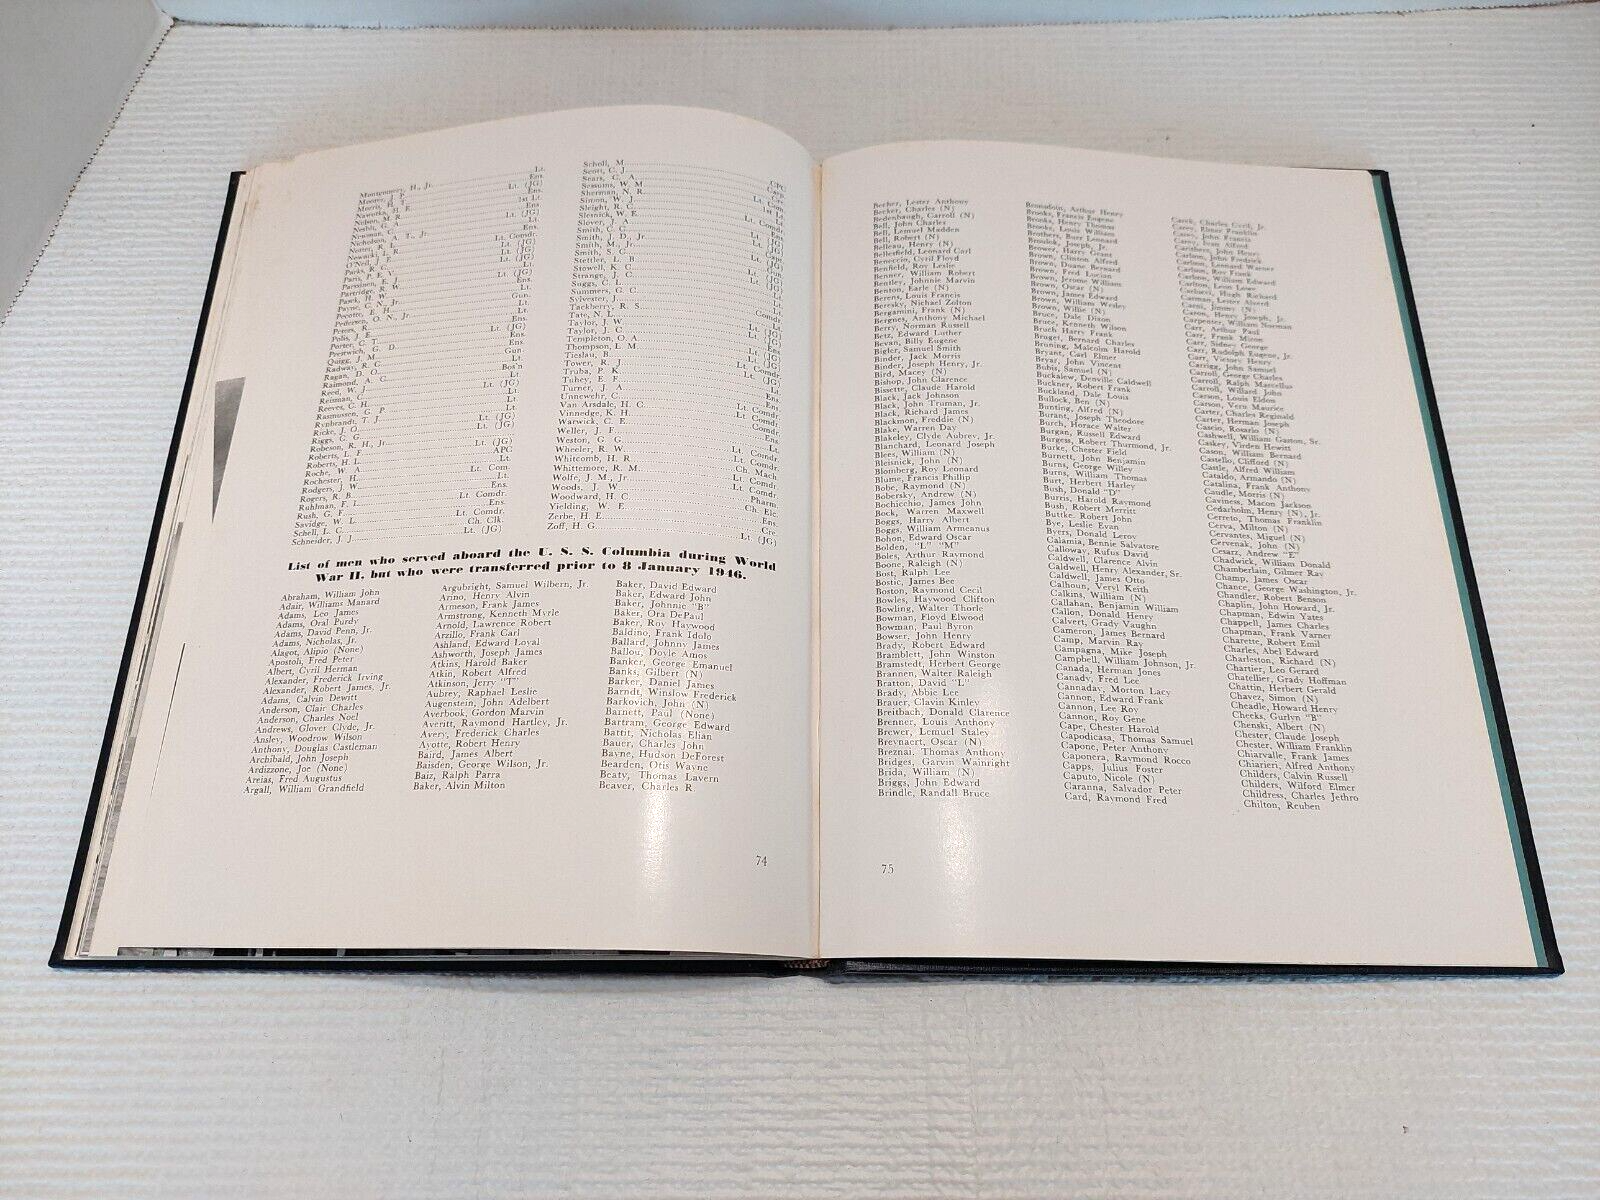 Montgomery, H., Jr. Lt.
Moore, J. P. Ens.
Morris, H. T. Lt. (JG)
Naworka, H. E. Ens.
Nelson, M. R. 1st Lt.
Nesbit, G. A. Lt. (JG)
Newman, C. Lt.
Nicholson, A. T., Jr. Ens.
Notter, R. L. Lt. Comdr.
Nowacki, L. R. Lt. (JG)
O'Neil, J. E. Lt. (JG)
Parks, R. C. Lt. (JG)
Paris, P. E. V. Lt.
Parssinen, E. J. Lt. (JG)
Partridge, R. W. Ens.
Pawek, H. W. Lt.
Payne, C. N., Jr. Gun.
Pecotte, E. H. Lt.
Pedersen, O. N., Jr. Ens.
Peters, R. Lt. (JG)
Polis, J. E. Lt. (JG)
Porter, C. T. Ens.
Prestwich, G. D. Gun.
Quigg, J. M. Lt.
Radway, R. C. Bos'n
Ragan, D. O. Lt.
Raimond, A. C. Lt. (JG)
Reed, W. J. Lt.
Reisman, C. Lt.
Reeves, C. H. Lt.
Rasmussen, G. P. Lt. (JG)
Rynbrandt, T. J. Lt. (JG)
Ricke, J. O.
Riggs, C. G. Lt. (JG)
Robeson, R. H., Jr. APC
Roberts, L. F. Lt.
Roberts, H. L. Lt. Com.
Roche, W. A. Lt.
Rochester, H. Ens.
Rodgers, J. W. Lt. Comdr.
Rogers, R. B. Ens.
Ruhlman, F. L. Lt. Comdr.
Rush, G. F. Ch. Clk.
Savidge, W. L. Lt. (JG)
Schell, L.
Schneider, J. J.
Scholl, M. CPC
Scott, C. J. Carp.
Sears, C. A. Cre.
Seasums, W. M. Lt. Com.
Sherman, N. R. 1st Lt.
Simon, W. J. Comdr.
Sleight, R. C. Ens.
Slesnick, W. E. Lt. (JG)
Slover, J. A. Lt. Comdr.
Smith, C. C. Capt.
Smith, J. D., Jr. Lt. (JG)
Smith, M., Jr. Gun.
Smith, S. C. Lt. Com.
Stettler, L. B. Lt. (JG)
Stowell, K. C. Lt. (JG)
Strange, J. C. Lt.
Suggs, C. L. Lt.
Summers, G. C. Comdr.
Sylvester, J. Lt.
Tackberry, R. S. Lt. (JG)
Tate, N. L. Lt. (JG)
Taylor, J. W. Ens.
Taylor, J. C. Lt. (JG)
Templeton, O. A. Lt. Comdr.
Thompson, L. M. Lt. (JG)
Tieslau, B. Lt.
Tower, R. J. Ens.
Truba, P. K. Ens.
Tuhey, E. F. Lt. Comdr.
Turner, J. A. Lt. Comdr.
Unnewehr, C. Comdr.
Van Arsdale, H. C. Ens.
Vinnedge, K. H. Lt.
Warwick, C. E. Lt. Comdr.
Weller, J. F. Lt. Comdr.
Weston, G. G. Ch. Mach.
Wheeler, R. W. Lt. Comdr.
Whitcomb, H. R. Lt. Comdr.
Whittemore, R. M. Pharm.
Wolfe, J. M., Jr. Ch. Elc.
Woods, J. W. Ens.
Woodward, H. C. Cre.
Yielding, W. E. Lt. (JG)
Zerbe, H. E.
Zoff, H. G.
List of men who served aboard the U. S. S. Columbia during World
War II, but who were transferred prior to 8 January 1946.
Abraham, William John
Adair, Williams Manard
Adams, Leo James
Adams, Oral Purdy
Adams, David Penn, Jr.
Adams, Nicholas, Jr.
Alagot, Alipio (None)
Apostoli, Fred Peter
Albert, Cyril Herman
Alexander, Frederick Irving
Alexander, Robert James, Jr.
Adams, Calvin Dewitt
Anderson, Clair Charles
Anderson, Charles Noel
Andrews, Glover Clyde, Jr.
Ansley, Woodrow Wilson
Anthony, Douglas Castleman
Archibald, John Joseph
Ardizzone, Joe (None)
Areias, Fred Augustus
Argall, William Grandfield
Argubright, Samuel Wilbern, Jr.
Arino, Henry Alvin
Armeson, Frank James
Armstrong, Kenneth Myrle
Arnold, Lawrence Robert
Arzillo, Frank Carl
Ashland, Edward Loyal
Ashworth, Joseph James
Atkins, Harold Baker
Atkin, Robert Alfred
Atkinson, Jerry "T"
Aubrey, Raphael Leslie
Augenstein, John Adelbert
Averbook, Gordon Marvin
Averitt, Raymond Hartley, Jr.
Avery, Frederick Charles
Ayotte, Robert Henry
Baird, James Albert
Baisden, George Wilson, Jr.
Baiz, Ralph Parra
Baker, Alvin Milton
Baker, David Edward
Baker, Edward John
Baker, Johnnie "B"
Baker, Ora DePaul
Baker, Roy Haywood
Baldino, Frank Idolo
Ballard, Johnny James
Ballou, Doyle Amos
Banker, George Emanuel
Banks, Gilbert (N)
Barker, Daniel James
Barndt, Winslow Frederick
Barkovich, John (N)
Barnett, Paul (None)
Bartram, George Edward
Battit, Nicholas Elian
Bauer, Charles John
Bayne, Hudson DeForest
Bearden, Otis Wayne
Beaty, Thomas Lavern
Beaver, Charles R
74
Becher, Lester Anthony
Becker, Charles (N)
Bedenbaugh, Carroll (N)
Bell, John Charles
Bell, Lemuel Madden
Bell, Robert (N)
Belleau, Henry (N)
Bellenfield, Leonard Carl
Beneccio, Cyril Floyd
Benfield, Roy Leslie
Benner, William Robert
Bentley, Johnnie Marvin
Benton, Earle (N)
Berens, Louis Francis
Beresky, Nichael Zolton
Bergamini, Frank (N)
Bergnes, Anthony Michael
Berry, Norman Russell
Betz, Edward Luther
Bevan, Billy Eugene
Bigler, Samuel Smith
Binder, Jack Morris
Binder, Joseph Henry, Jr.
Bird, Macey (N)
Bishop, John Clarence
Bissette, Claude Harold
Black, Jack Johnson
Black, John Truman, Jr.
Black, Richard James
Blackmon, Freddie (N)
Blake, Warren Day
Blakeley, Clyde Aubrey, Jr.
Blanchard, Leonard Joseph
Blees, William (N)
Bleisnick, John (N)
Blomberg, Roy Leonard
Blume, Francis Phillip
Bobe, Raymond (N)
Bobersky, Andrew (N)
Bochicchio, James John
Bock, Warren Maxwell
Boggs, Harry Albert
Boggs, William Armeanus
Bohon, Edward Oscar
Bolden, "L" "M"
Boles, Arthur Raymond
Boone, Raleigh (N)
Bost, Ralph Lee
Bostic, James Bee
Boston, Raymond Cecil
Bowles, Haywood Clifton
Bowling, Walter Thorle
Bowman, Floyd Elwood
Bowman, Paul Byron
Bowser, John Henry
Brady, Robert Edward
Bramblett, John Winston
Bramstedt, Herbert George
Brannen, Walter Raleigh
Bratton, David "L"
Brady, Abbie Lee
Brauer, Clavin Kinley
Breitbach, Donald Clarence
Brenner, Louis Anthony
Brewer, Lemuel Staley
Breynaert, Oscar (N)
Breznai, Thomas Anthony
Bridges, Garvin Wainright
Brida, William (N)
Briggs, John Edward
Brindle, Randall Bruce
Bromadoin, Arthur Henry
Brooks, Francis Eugene
Brooks, Henry Thomas
Brooks, Louis William
Brothers, Burr Leonard
Broulok, Joseph, Jr.
Brower, Harry Grant
Brown, Clinton Alfred
Brown, Duane Bernard
Brown, Fred Lucian
Brown, Jerome William
Brown, Oscar (N)
Brown, James Edward
Brown, William Wesley
Brown, Willie (N)
Bruce, Dale Dixon
Bruce, Kenneth Wilson
Bruch Harry Frank
Brugei, Bernard Charles
Bruning, Malcolm Harold
Bryant, Carl Elmer
Bryar, John Vincent
Bubis, Samuel (N)
Buckalew, Denville Caldwell
Buckner, Robert Frank
Buckland, Dale Louis
Bullock, Ben (N)
Bunting, Alfred (N)
Burant, Joseph Theodore
Burch, Horace Walter
Burgan, Russell Edward
Burgess, Robert Thurmond, Jr.
Burke, Chester Field
Burnett, John Benjamin
Burns, George Willey
Burns, William Thomas
Burt, Herbert Harley
Bush, Donald "D"
Burris, Harold Raymond
Bush, Robert Merritt
Buttke, Robert John
Bye, Leslie Evan
Byers, Donald Leroy
Calamia, Bennie Salvatore
Calloway, Rufus David
Caldwell, Clarence Alvin
Caldwell, Henry Alexander, Sr.
Caldwell, James Otto
Calhoun, Veryl Keith
Calkins, William (N)
Callahan, Benjamin William
Callon, Donald Henry
Calvert, Grady Vaughn
Cameron, James Bernard
Camp, Marvin Ray
Campagna, Mike Joseph
Campbell, William Johnson, Jr.
Canada, Herman Jones
Canady, Fred Lee
Cannaday, Morton Lacy
Cannon, Edward Frank
Cannon, Lee Roy
Cannon, Roy Gene
Cape, Chester Harold
Capodicasa, Thomas Samuel
Capone, Peter Anthony
Caponera, Raymond Rocco
Capps, Julius Foster
Caputo, Nicole (N)
Caranna, Salvador Peter
Card, Raymond Fred
Carek, Charles Cyril, Jr.
Carey, Elmer Franklin
Carey, John Francis
Carey, Ivan Alfred
Carithers, John Henri
Carlson, John Fredrick
Carlson, Leonard Warner
Carlson, Roy Frank
Carlson, William Edward
Carlton, Leon Lowe
Carlucci, Hugh Richard
Carman, Lester Alverd
Carni, Jimmy (N)
Caron, Henry Joseph, Jr.
Carpenter, William Norman
Carr, Arthur Paul
Carr, Frank Mizon
Carr, Sidney George
Carr, Rudolph Eugene, Jr.
Carr, Victory Henry
Carrigg, John Samuel
Carroll, George Charles
Carroll, Ralph Marcellus
Carroll, Willard John
Carson, Louis Eldon
Carson, Vern Maurice
Carter, Charles Reginald
Carter, Herman Joseph
Cascio, Rosario (N)
Cashwell, William Gaston, Sr.
Caskey, Virden Hewitt
Cason, William Bernard
Castello, Clifford (N)
Castle, Alfred William
Cataldo, Armando (N)
Catalina, Frank Anthony
Caudle, Morris (N)
Caviness, Macon Jackson
Cedarholm, Henry (N), Jr.
Cerreto, Thomas Franklin
Cerva, Milton (N)
Cervantes, Miguel (N)
Cervenak, John (N)
Cesarz, Andrew "E"
Chadwick, William Donald
Chamberlain, Gilmer Ray
Champ, James Oscar
Chance, George Washington, Jr.
Chandler, Robert Benson
Chaplin, John Howard, Jr.
Chapman, Edwin Yates
Chappell, James Charles
Chapman, Frank Varner
Charette, Robert Emil
Charles, Abel Edward
Charleston, Richard (N)
Chartier, Leo Gerard
Chatellier, Grady Hoffman
Chattin, Herbert Gerald
Chavez, Simon (N)
Cheadle, Howard Henry
Cheeks, Gurlyn "B"
Chenski, Albert (N)
Chester, Claude Joseph
Chester, William Franklin
Chiarvalle, Frank James
Chiarieri, Alfred Anthony
Childers, Calvin Russell
Childers, Wilford Elmer
Childress, Charles Jethro
Chilton, Reuben
75